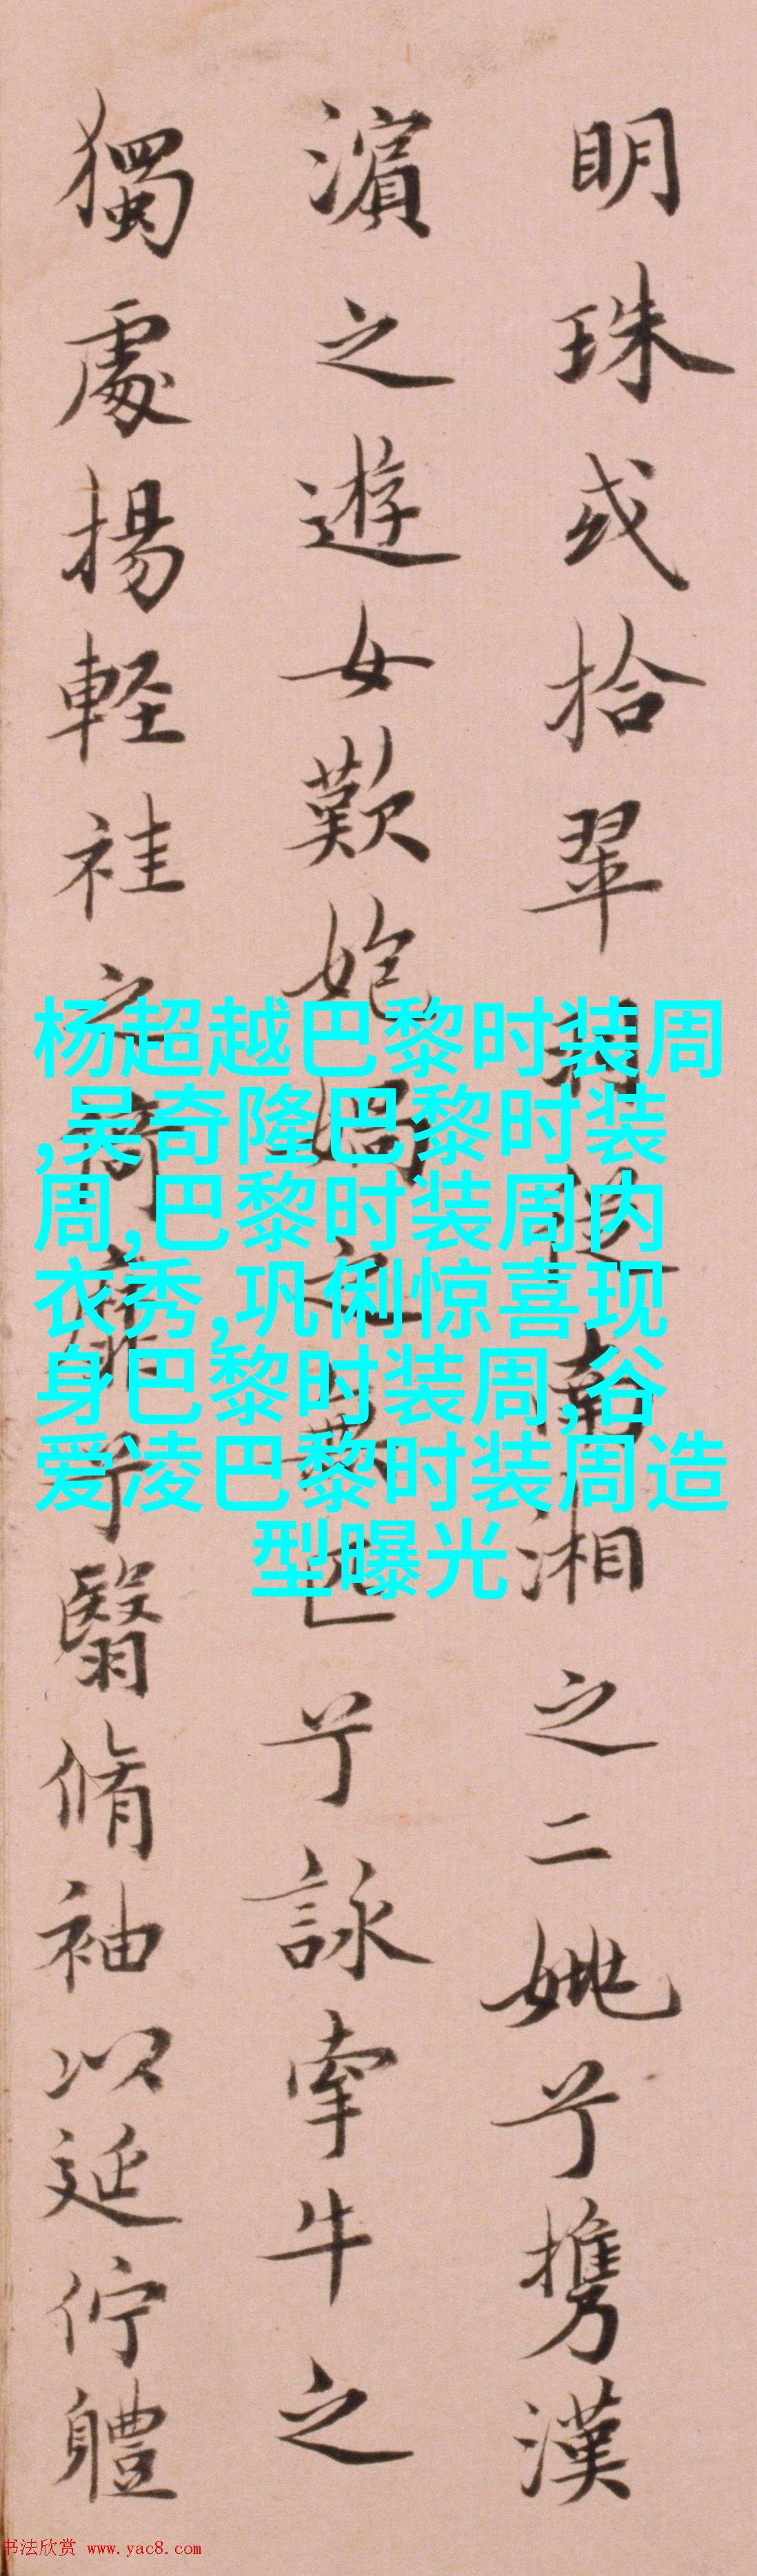 明珠或拾翠羽從南湘之二兮攜漢
濱之遊女歎媧之無匹兮詠牽牛之
獨處揚輕袿之猗靡兮翳脩袖以延佇體
杨超越巴黎时装周
,吴奇隆巴黎时装
周,巴黎时装周内
衣秀,巩俐惊喜现
身巴黎时装周,谷
爱凌巴黎时装周造
型曝光
书法欣赏 www.yac8.com